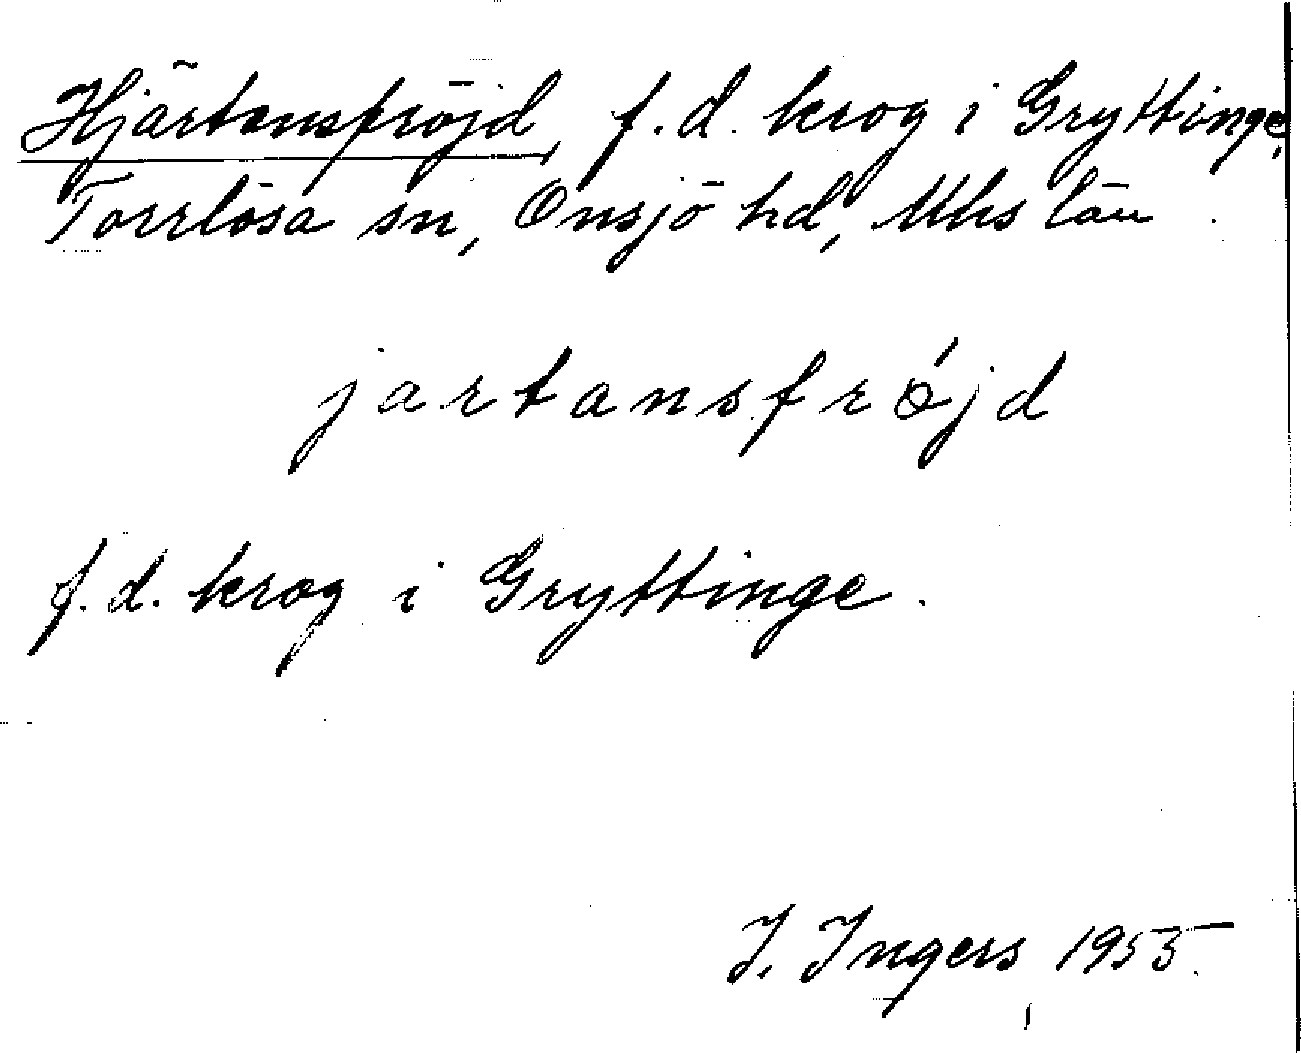 Hjärtansfröjd, f.d. krog i Gryttinge,
Torrlösa sn, Onsjö hd, Mhs län.
jartansfrǿjd
f.d. krog i Gryttinge.
I. Ingers, 1955.